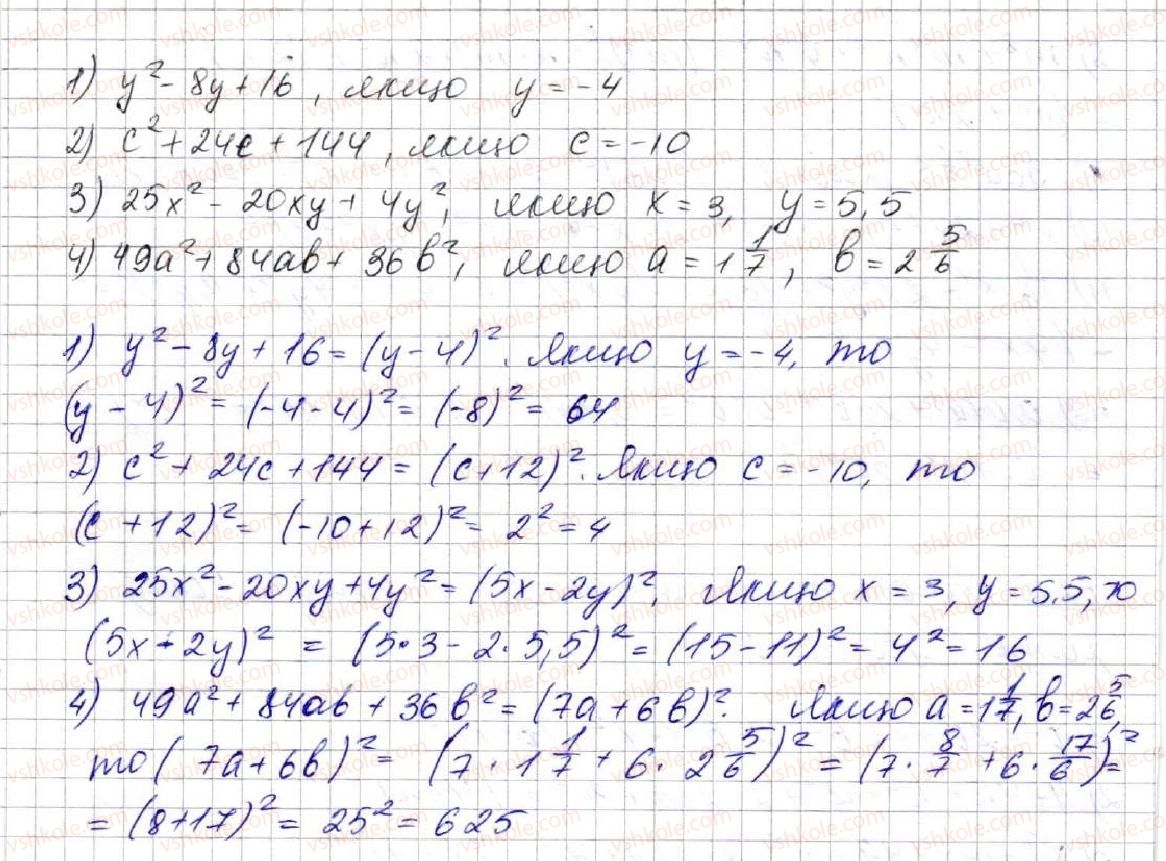 1) y² - 8y + 16, якщо y = -4
2) c² + 24c + 144, якщо c = -10
3) 25x² - 20xy + 4y², якщо x = 3, y = 5,5
4) 49a² + 84ab + 36b², якщо a = 1 1/7, b = 2 5/6
1) y² - 8y + 16 = (y - 4)². Якщо y = -4, то
(y - 4)² = (-4 - 4)² = (-8)² = 64
2) c² + 24c + 144 = (c + 12)². Якщо c = -10, то
(c + 12)² = (-10 + 12)² = 2² = 4
3) 25x² - 20xy + 4y² = (5x - 2y)². Якщо x = 3, y = 5,5, то
(5x - 2y)² = (5·3 - 2·5,5)² = (15 - 11)² = 4² = 16
4) 49a² + 84ab + 36b² = (7a + 6b)². Якщо a = 1 1/7, b = 2 5/6,
то (7a + 6b)² = (7 · 1 1/7 + 6 · 2 5/6)² = (7 · 8/7 + 6 · 17/6)² =
= (8 + 17)² = 25² = 625